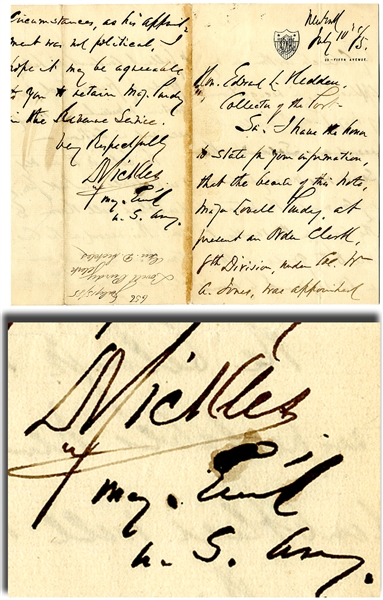 New York
July 10th /85.
23 - FIFTH AVENUE.
Hon. Edward L. Hedden
Collector of the Port
Sir. I have the honor
to state for your information,
that the bearer of this note,
Major Lovell Purdy, at
present an Order Clerk,
5th Division, under Col. Wm
A. Jones, was appointed
circumstances, as his appoint-
ment was not political, I
hope it may be agreeable
to you to retain Maj. Purdy
in the Revenue Service.
Very Respectfully
D Sickles
Maj. Genl
U. S. Army.
Lovell Purdy
Gen. D. Sickles
D Sickles
Maj. Genl
U. S. Army.